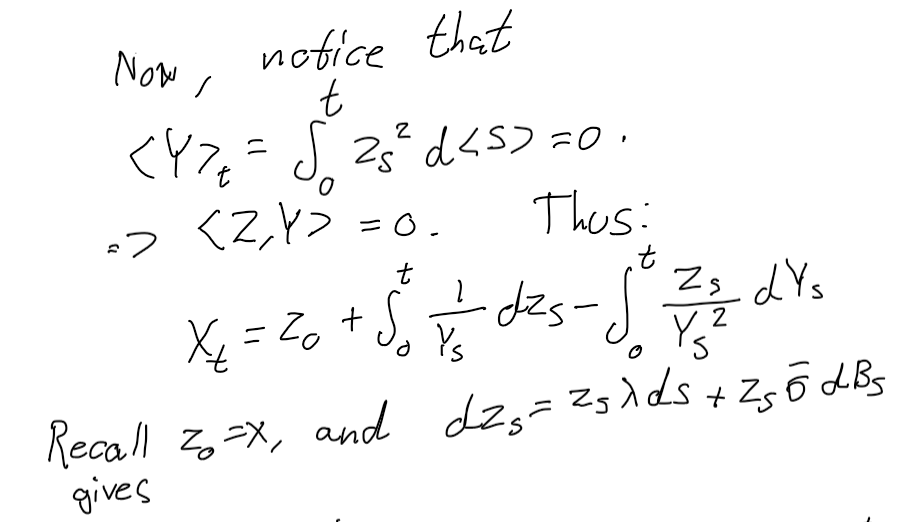 Now, notice that
<Y>_t = ∫_0^t Z_s^2 d<S> = 0.
=> <Z,Y> = 0. Thus:
X_t = Z_0 + ∫_0^t 1/Y_s dZ_s - ∫_0^t Z_s/Y_s^2 dY_s
Recall Z_0 = X, and dZ_s = Z_s λ ds + Z_s σ̄ dB_s
gives